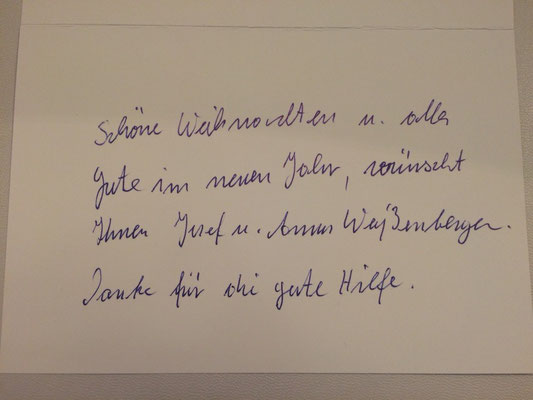 Schöne Weihnachten u. alles
Gute im neuen Jahr, wünscht
Ihnen Josef u. Weißenberger.
Danke für die gute Hilfe.